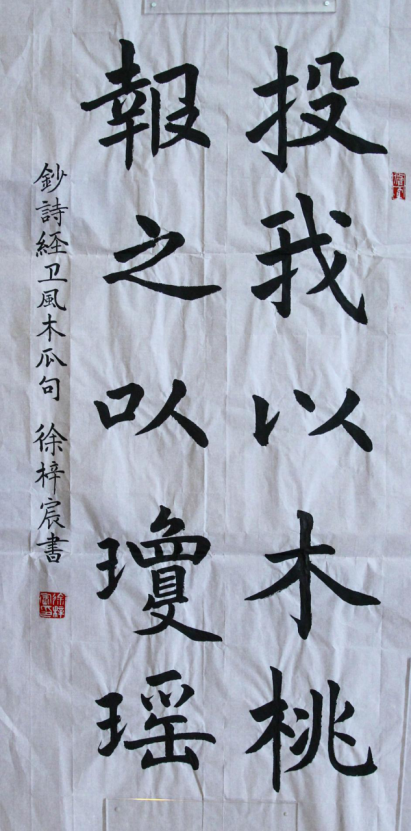 投我以木桃
報之㕥瓊瑶
鈔詩經卫風木瓜句 徐梓宸書